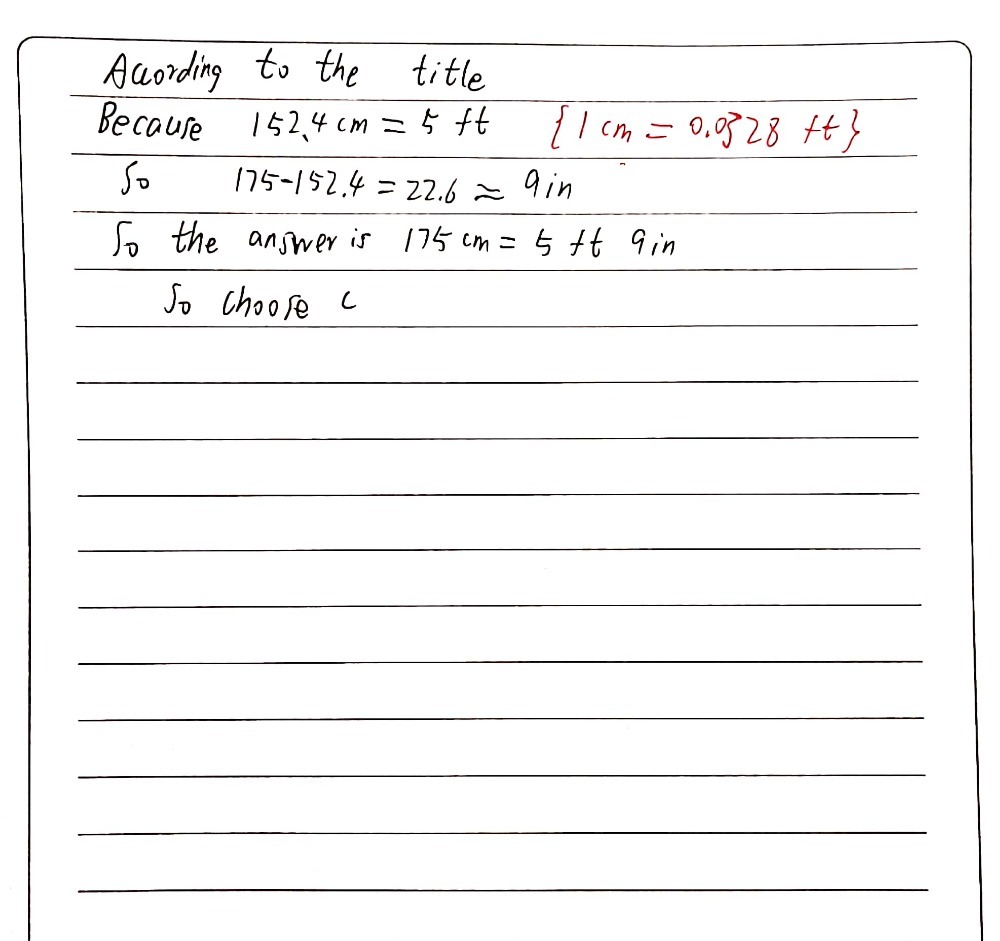 Acording to the title
Because 152.4 cm = 5 ft {1 cm = 0.0328 ft}
So 175-152.4 = 22.6 ≈ 9in
So the answer is 175 cm = 5 ft 9in
So choose C